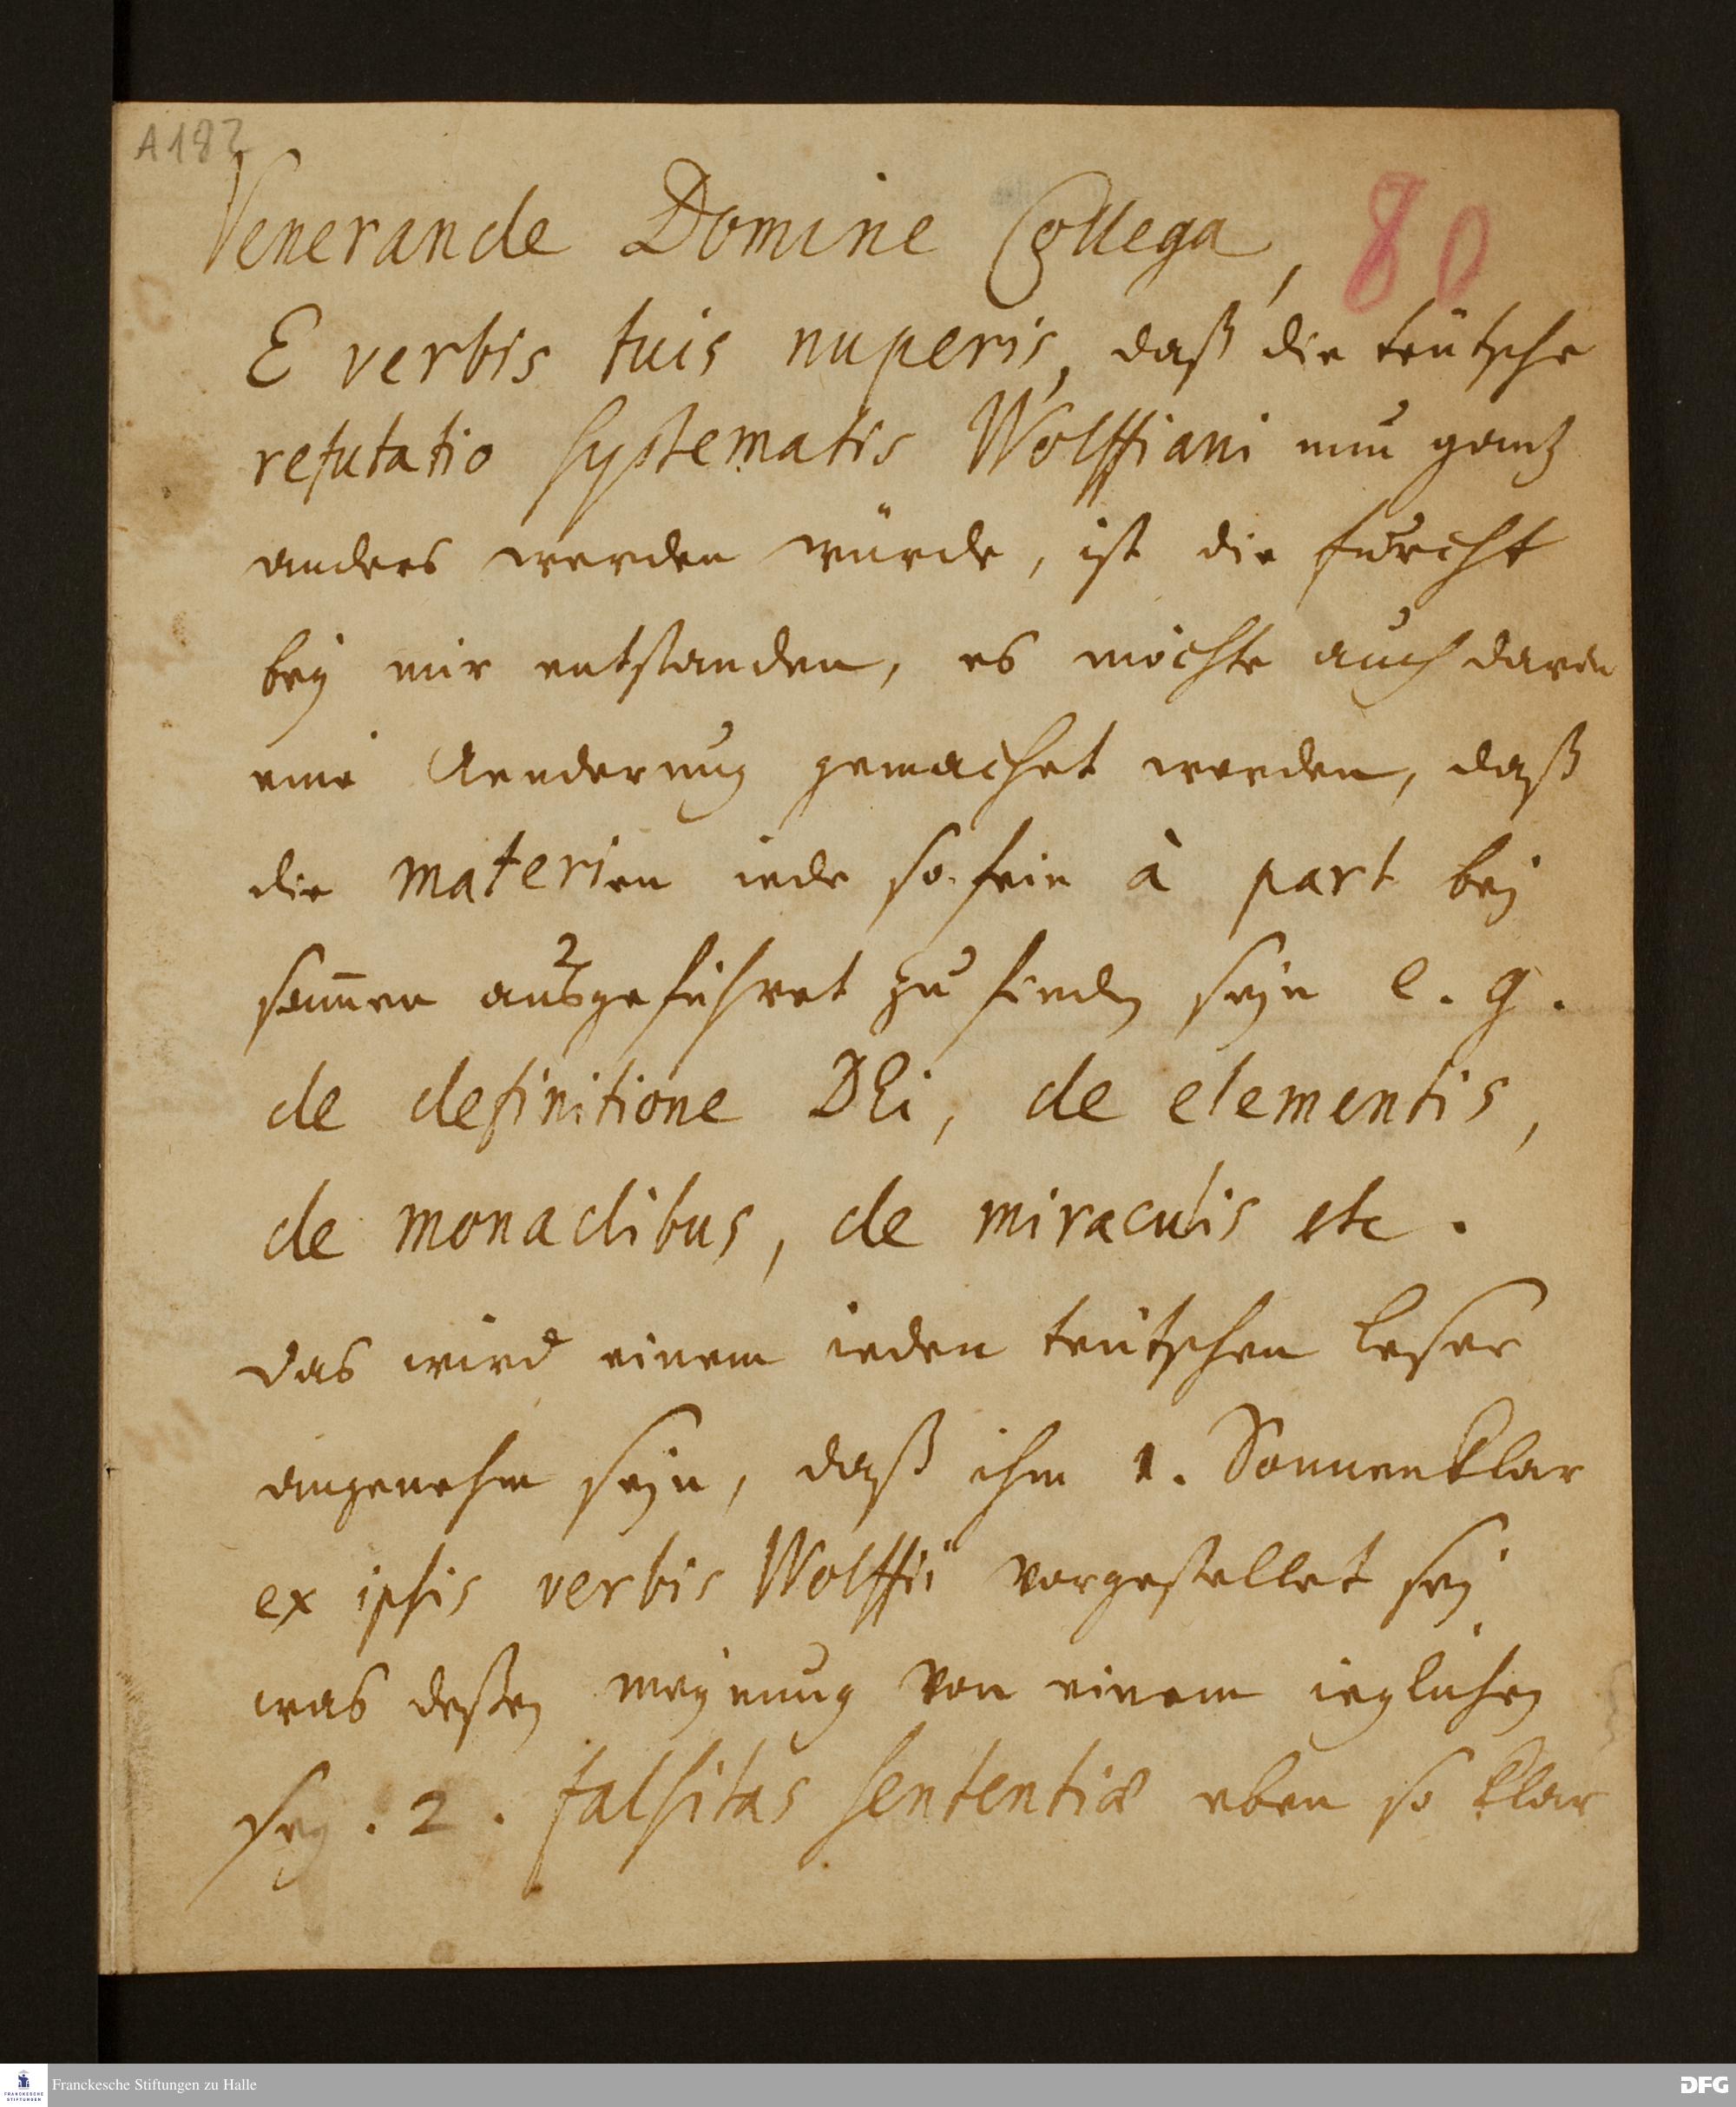 A182
80
Venerande Domine Collega,
E verbis tuis nuperis, daß die teutsche
refutatio Systematis Wolffiani nun gantz
anders werden würde, ist die furcht
bey mir entstanden, es möchte auch darin
eine Aenderung gemachet werden, daß
die materien iede so fein à part bey
sam̄en ausgeführet zu finden seyn e. g.
de definitione DEi, de elementis,
de monadibus, de miraculis etc.
das wird einem ieden teutschen leser
angenehm seyn, daß ihm 1. Sonnenklar
ex ipsis verbis Wolffii vorgestellet sey
was deßen meynung von einem ieglichen
sey. 2. falsitas sententiæ eben so klar
Franckesche Stiftungen zu Halle
FRANCKESCHE STIFTUNGEN
DFG